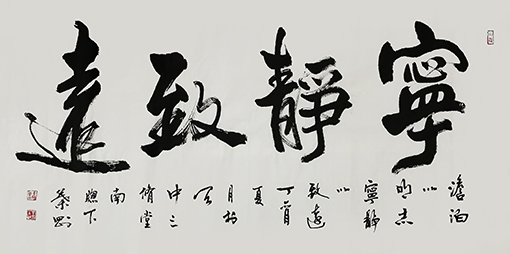 寧靜致遠
澹泊
以
明志
寧靜
以
致遠
丁酉
夏
月於
中三
脩堂
南
牕下